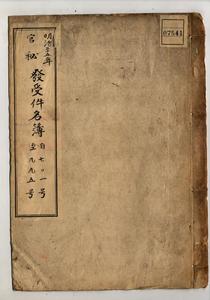 明治三五年
官秘
發受件名簿
自七〇一号
至九九五号
07541